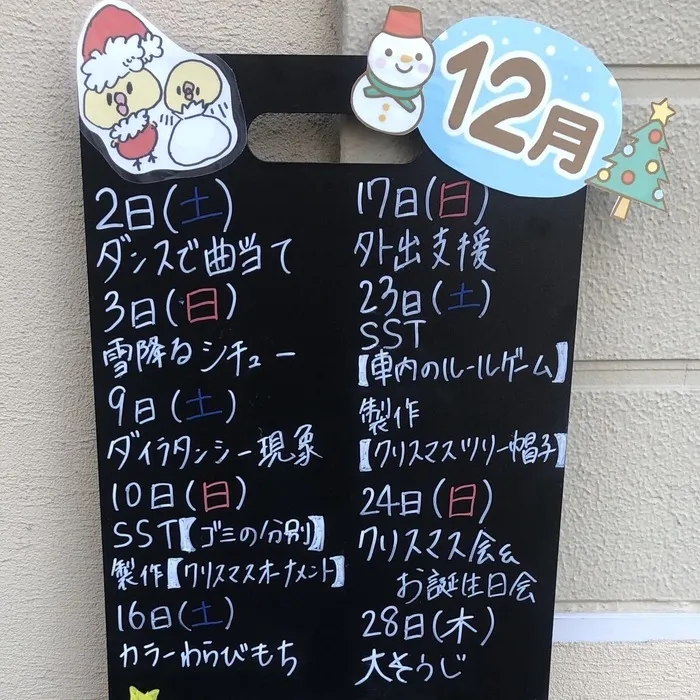 12月
2日(土)
ダンスで曲当て
3日(日)
雪降るシチュー
9日(土)
ダイラタンシー現象
10日(日)
SST【ゴミの分別】
製作【クリスマスオーナメント】
16日(土)
カラーわらびもち
17日(日)
外出支援
23日(土)
SST
【車内のルールゲーム】
製作
【クリスマスツリー帽子】
24日(日)
クリスマス会&
お誕生日会
28日(木)
大そうじ